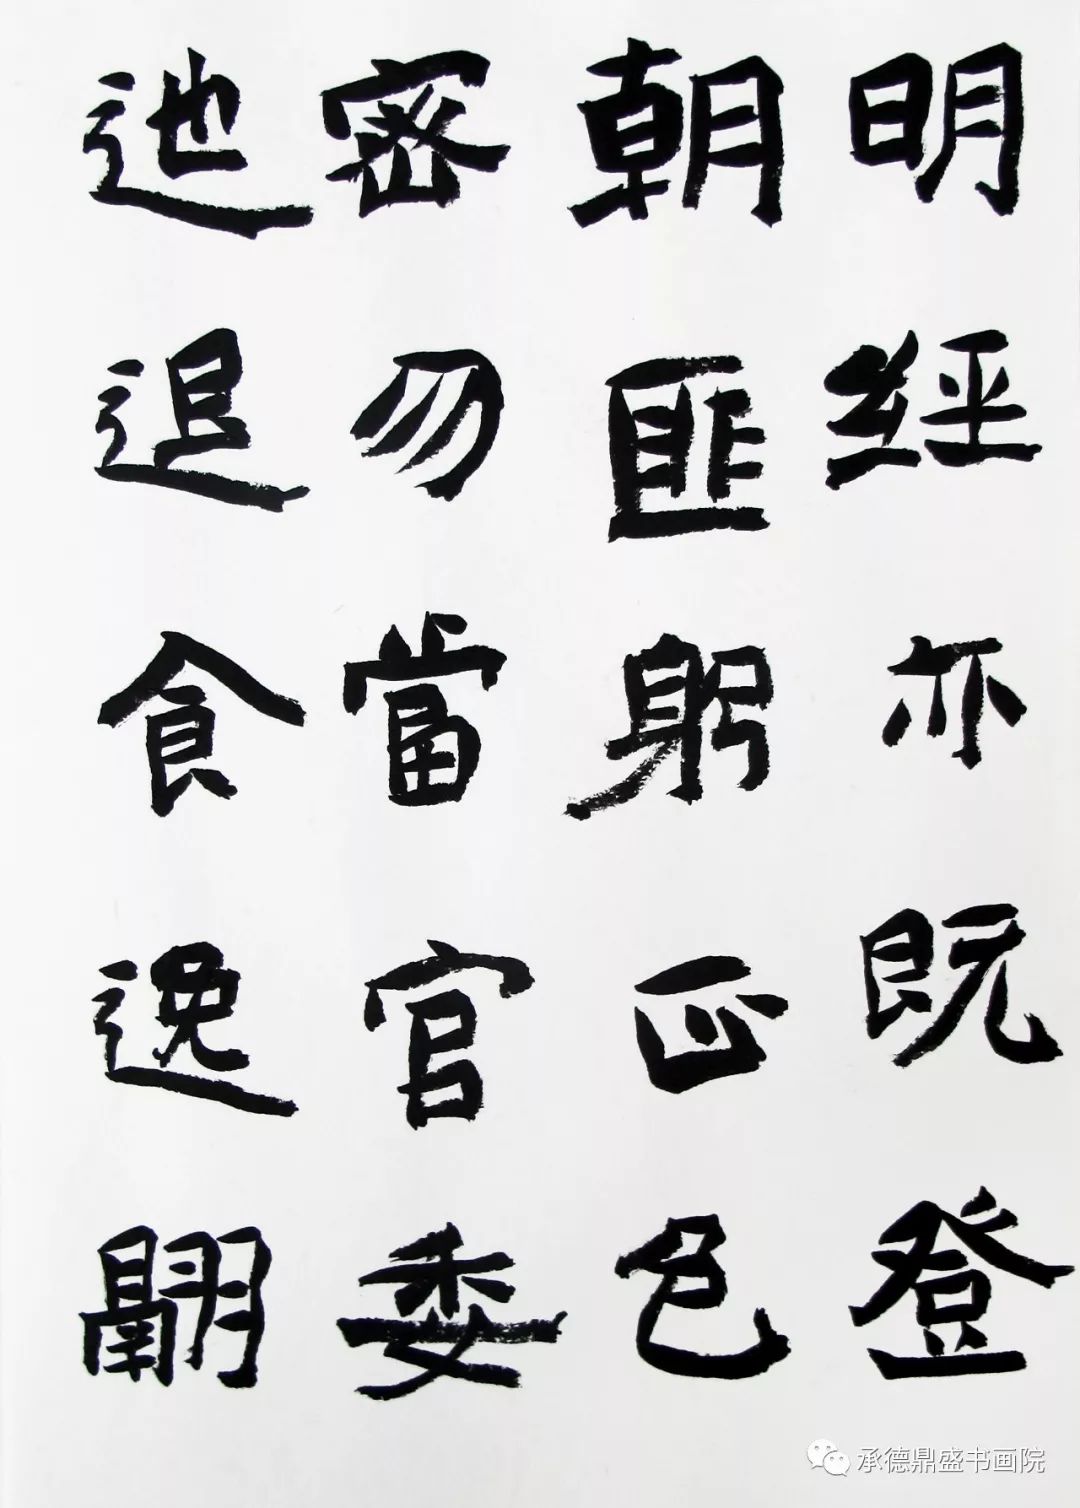 明經亦既登
朝匪躬正色
密勿當官委
迆退食逸翮
承德鼎盛书画院